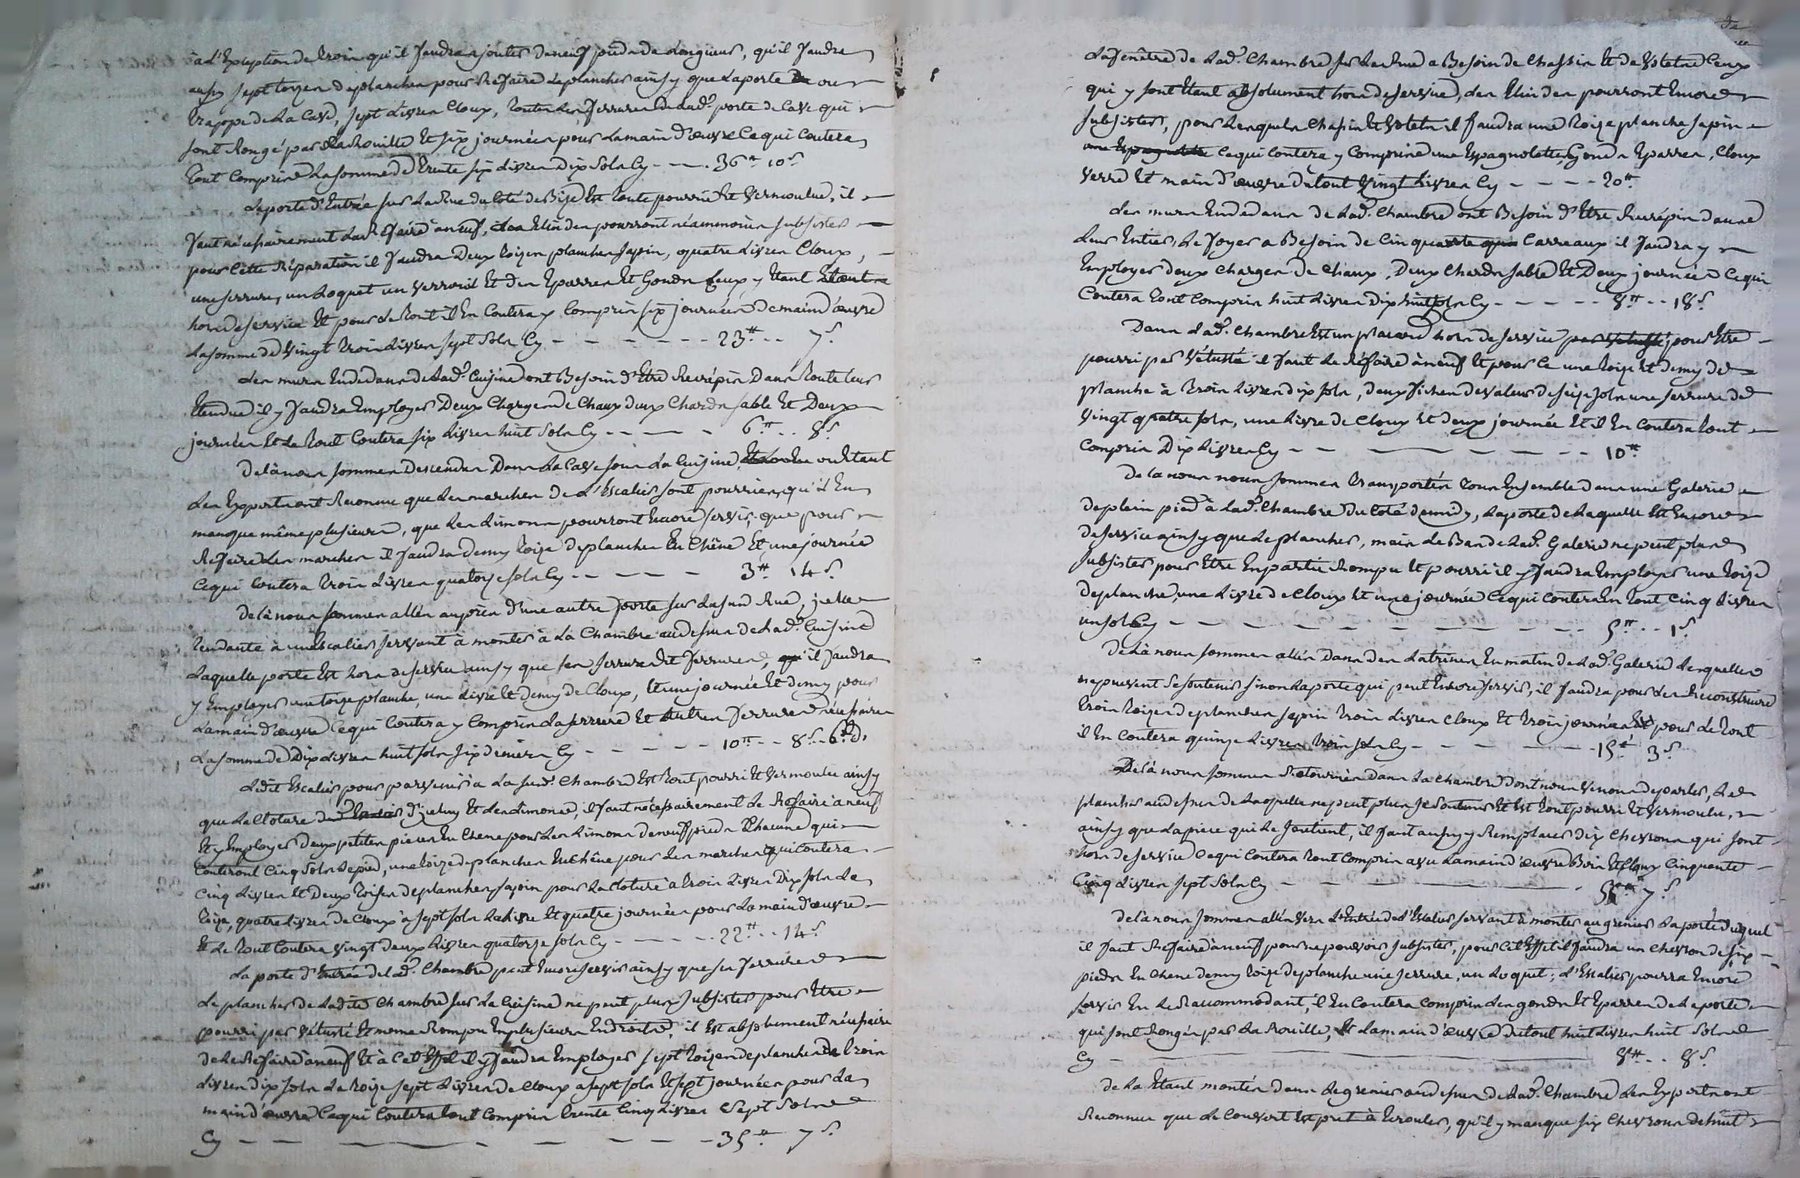 à L'Exception de trois qu'il faudra ajouter de neuf pieds de Longueur, qu'il faudra
aussy sept toizes de planches pour Refaire Le plancher ainsy que La porte ou
trappe de La Cave, sept Livres Cloux, toutes Les ferrures de Lad.e porte de Cave qui
sont Rongé par La Rouille Et six journées pour La main d'œuvre Ce qui Coutera
tout Compris La somme de trente six Livres Dix Sols Cy - - - 36tt 10s
La porte d'Entrée sur La Rue du Coté de Bize Est toute pourrie Et Vermoulue, il
faut nécessairement La Refaire à neuf, Les Elindes pourront néammoins subsister
pour Cette Réparation il faudra Deux toizes planches Sapin, quatre Livres Cloux,
une serrure, un Loquet un Verrouil Et des Eparres Et Gonds Ceux y Etant
hors de service Et pour le tout il En Coutera y Compris six journées de main d'œuvre
La somme de Vingt trois Livres sept Sols Cy - - - - - - 23tt - - 7s
Les murs En dedans de Lad.e Cuisine ont Besoin d'Etre Recrépis Dans toute Leur
Etendue il y faudra Employer Deux Charges de Chaux deux Chards sable Et Deux
journées Et Le tout Coutera six Livres huit Sols Cy - - - - 6tt - - 8s
De là nous sommes descendus Dans La Cave sous La Cuisine où Etant
Les Experts ont Reconnu que Les marches de L'Escalier sont pourries, qu'il En
manque même plusieurs, que Les Limons pourront Encore servir, que pour
Refaire Les marches il faudra demy toize de planches En Chêne Et une journée
Ce qui Coutera trois Livres quatorze sols Cy - - - - - 3tt 14s
De là nous sommes allés auprès d'une autre porte sur La sud. Rue,
tendante à un Escalier servant à monter à La Chambre au dessus de Lad.e Cuisine
Laquelle porte Est hors de service ainsy que ses serrure Et ferrures, qu'il faudra
y Employer une toize planche, une Livre Et demy de Cloux, Et une journée Et demy pour
La main d'œuvre Ce qui Coutera y Compris La serrure Et Autres ferrures nécessaires
La somme de Dix Livres huit sols six deniers Cy - - - - - 10tt - - 8s - 6d.
Ledit Escalier pour parvenir à La sud.e Chambre Est tout pourri Et Vermoulu ainsy
que La Cloture d'jceluy Et Les Limons, il faut nécessairement Le Refaire à neuf
Et y Employer deux petites pieces En Chene pour Les Limons de neuf pieds Chacune qui
Couteront Cinq Sols Le pied, une toize de planches En Chêne pour Les marches qui Coutera
Cinq Livres Et Deux toizes de planches Sapin pour La Cloture à trois Livres Dix Sols La
toize, quatre Livres de Cloux à sept sols La Livre Et quatre journées pour La main d'œuvre
Et Le tout Coutera Vingt Deux Livres quatorze sols Cy - - - - - 22tt - - 14s
La porte d'Entrée de Lad.e Chambre peut Encore servir ainsy que sa ferrure
Le plancher de Ladite Chambre sur La Cuisine ne peut plus subsister pour Etre
pourri par Vétusté Et meme Rompu En plusieurs Endroits, il Est absolument nécessaire
de Le Refaire à neuf Et à Cet Effet il y faudra Employer sept toizes de planches de trois
Livres dix sols La toize sept Livres de Cloux a sept sols Et sept journées pour La
main d'œuvre Ce qui Coutera tout Compris trente Cinq Livres Sept Sols
Cy - - - - - - - - 35tt 7s
La fenêtre de Lad.e Chambre sur La Rue a Besoin de Chassis Et de Volets Ceux
qui y sont Etant absolument hors de service, Les Elindes pourront Encore
subsister, pour Lesquels Chasis Et Volets il faudra une toize planche Sapin
Ce qui Coutera y Compris une Espagnolette Gonds Eparres, Cloux
Verre Et main d'œuvre Du tout Vingt Livres Cy - - - - 20tt
Les murs En dedans de Lad.e Chambre ont Besoin d'Etre Recrépis dans
Leur Entier, Le foyer a Besoin de Cinquante Carreaux il faudra y
Employer deux Charges de Chaux, Deux Chards Sable Et Deux journées Ce qui
Coutera tout Compris huit Livres Dix huit Sols Cy - - - - - - 8tt - - 18s
Dans Lad.e Chambre Est un placard hors de service pour Etre
pourri par Vétusté il faut Le Refaire à neuf Et pour Ce une toize Et demy de
planche à trois Livres dix sols, deux fiches de Valeur de seize sols une serrure de
Vingt quatre sols, une Livre de Cloux Et deux journée Et il En Coutera tout
Compris Dix Livres Cy - - - - - - - 10tt
De la nous nous sommes transportés tous Ensemble dans une Galerie
de plein pied à Lad.e Chambre Du Coté de midy, La porte de Laquelle Est Encore
de service ainsy que Le plancher, mais Le Ban de Lad.e Galerie ne peut plus
subsister pour Etre En partie Rompu Et pourri il y faudra Employer une toize
de planche, une Livre de Cloux Et une journée Ce qui Coutera En tout Cinq Livres
un sol Cy - - - - - - - - - - - 5tt - - 1s
De Là nous sommes allés Dans Des Latrines En matin de Lad.e Galerie Lesquelles
ne peuvent se soutenir sinon La porte qui peut Encore servir, il faudra pour Les Reconstruire
trois toizes de planches sapin trois Livres Cloux Et trois journées Et pour Le tout
il En Coutera quinze Livres trois sols Cy - - - - - - - 15tt 3s
De Là nous sommes Retournés Dans La Chambre dont nous Venons de parler, Le
plancher au dessus de Laquelle ne peut plus se soutenir Et Est tout pourri Et Vermoulu,
ainsy que La piece qui Le soutient, il faut aussy y Remplacer dix Chevrons qui sont
hors de service Ce qui Coutera tout Compris La main d'œuvre Bois Et Cloux Cinquante
Cinq Livres sept Sols Cy - - - - - 55tt 7s
De la nous sommes allés Vers L'Entrée de L'Escalier servant à monter au grenier La porte duquel
il faut Refaire à neuf pour ne pouvoir subsister, pour Cet Effet il faudra un Chevron de six
pieds En Chene demy toize de planche une serrure, un Loquet; L'Escalier pourra Encore
servir En Le Raccommodant, il En Coutera Compris Les gonds Et Eparres de La porte
qui sont Rongés par La Rouille, Et La main d'œuvre Du tout huit Livres huit Sols
Cy - - - - - - 8tt - - 8s
De La Etant montés dans Le grenier au dessus de Lad.e Chambre Les Experts ont
Reconnu que Le Couvert Est pret à Ecrouler, qu'il y manque six Chevrons de huit